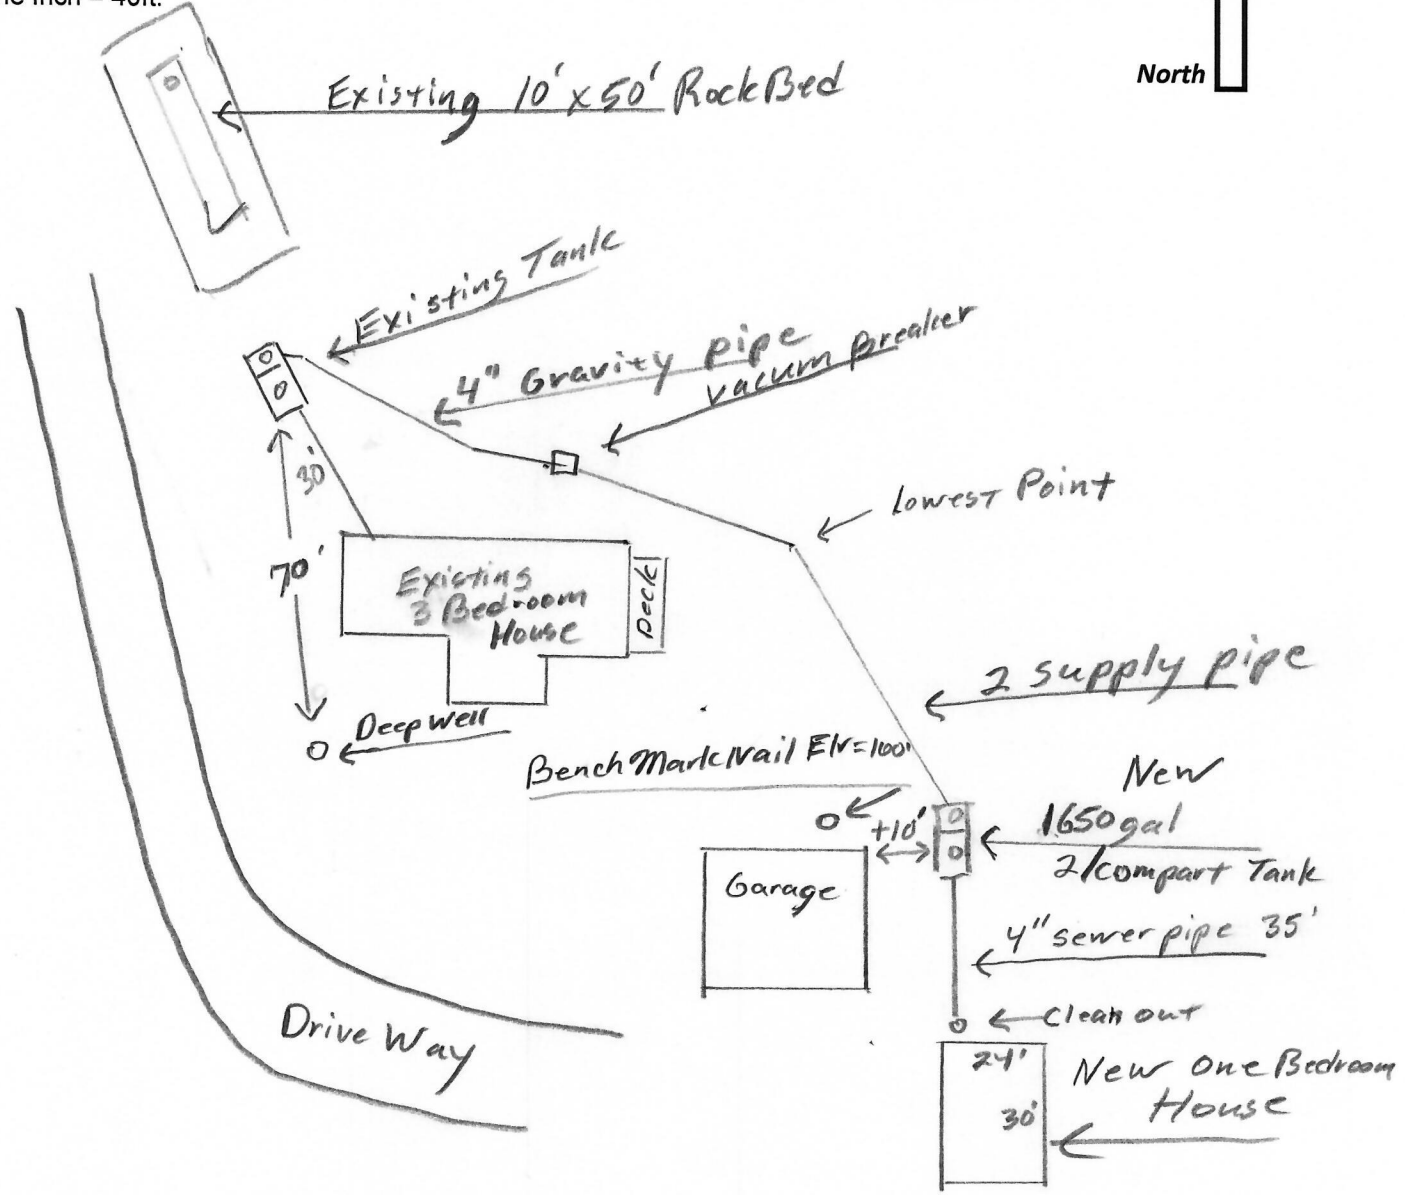 = 40ft.
North
Existing 10' x 50' Rock Bed
Existing Tank
4" Gravity pipe
vacum breaker
30'
Lowest Point
70'
Existing
3 Bedroom
House
Deck
2 supply pipe
Deep Well
Bench Mark Nail Elv=100'
New
1650 gal
2/compart Tank
+10'
Garage
4" sewer pipe 35'
Clean out
Drive Way
24'
30'
New One Bedroom
House